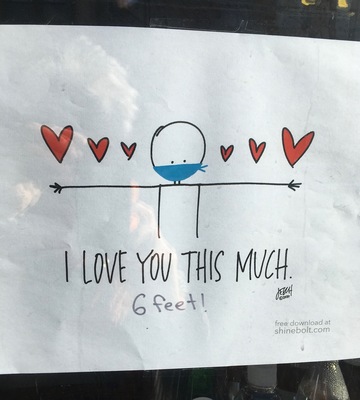 I LOVE YOU THIS MUCH.
6 feet!
free download at
shinebolt.com